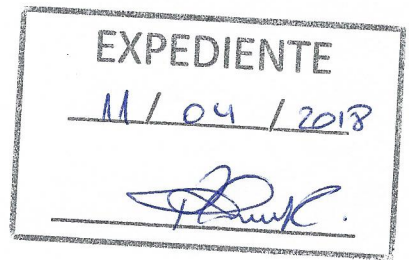 EXPEDIENTE
11 / 04 / 2018